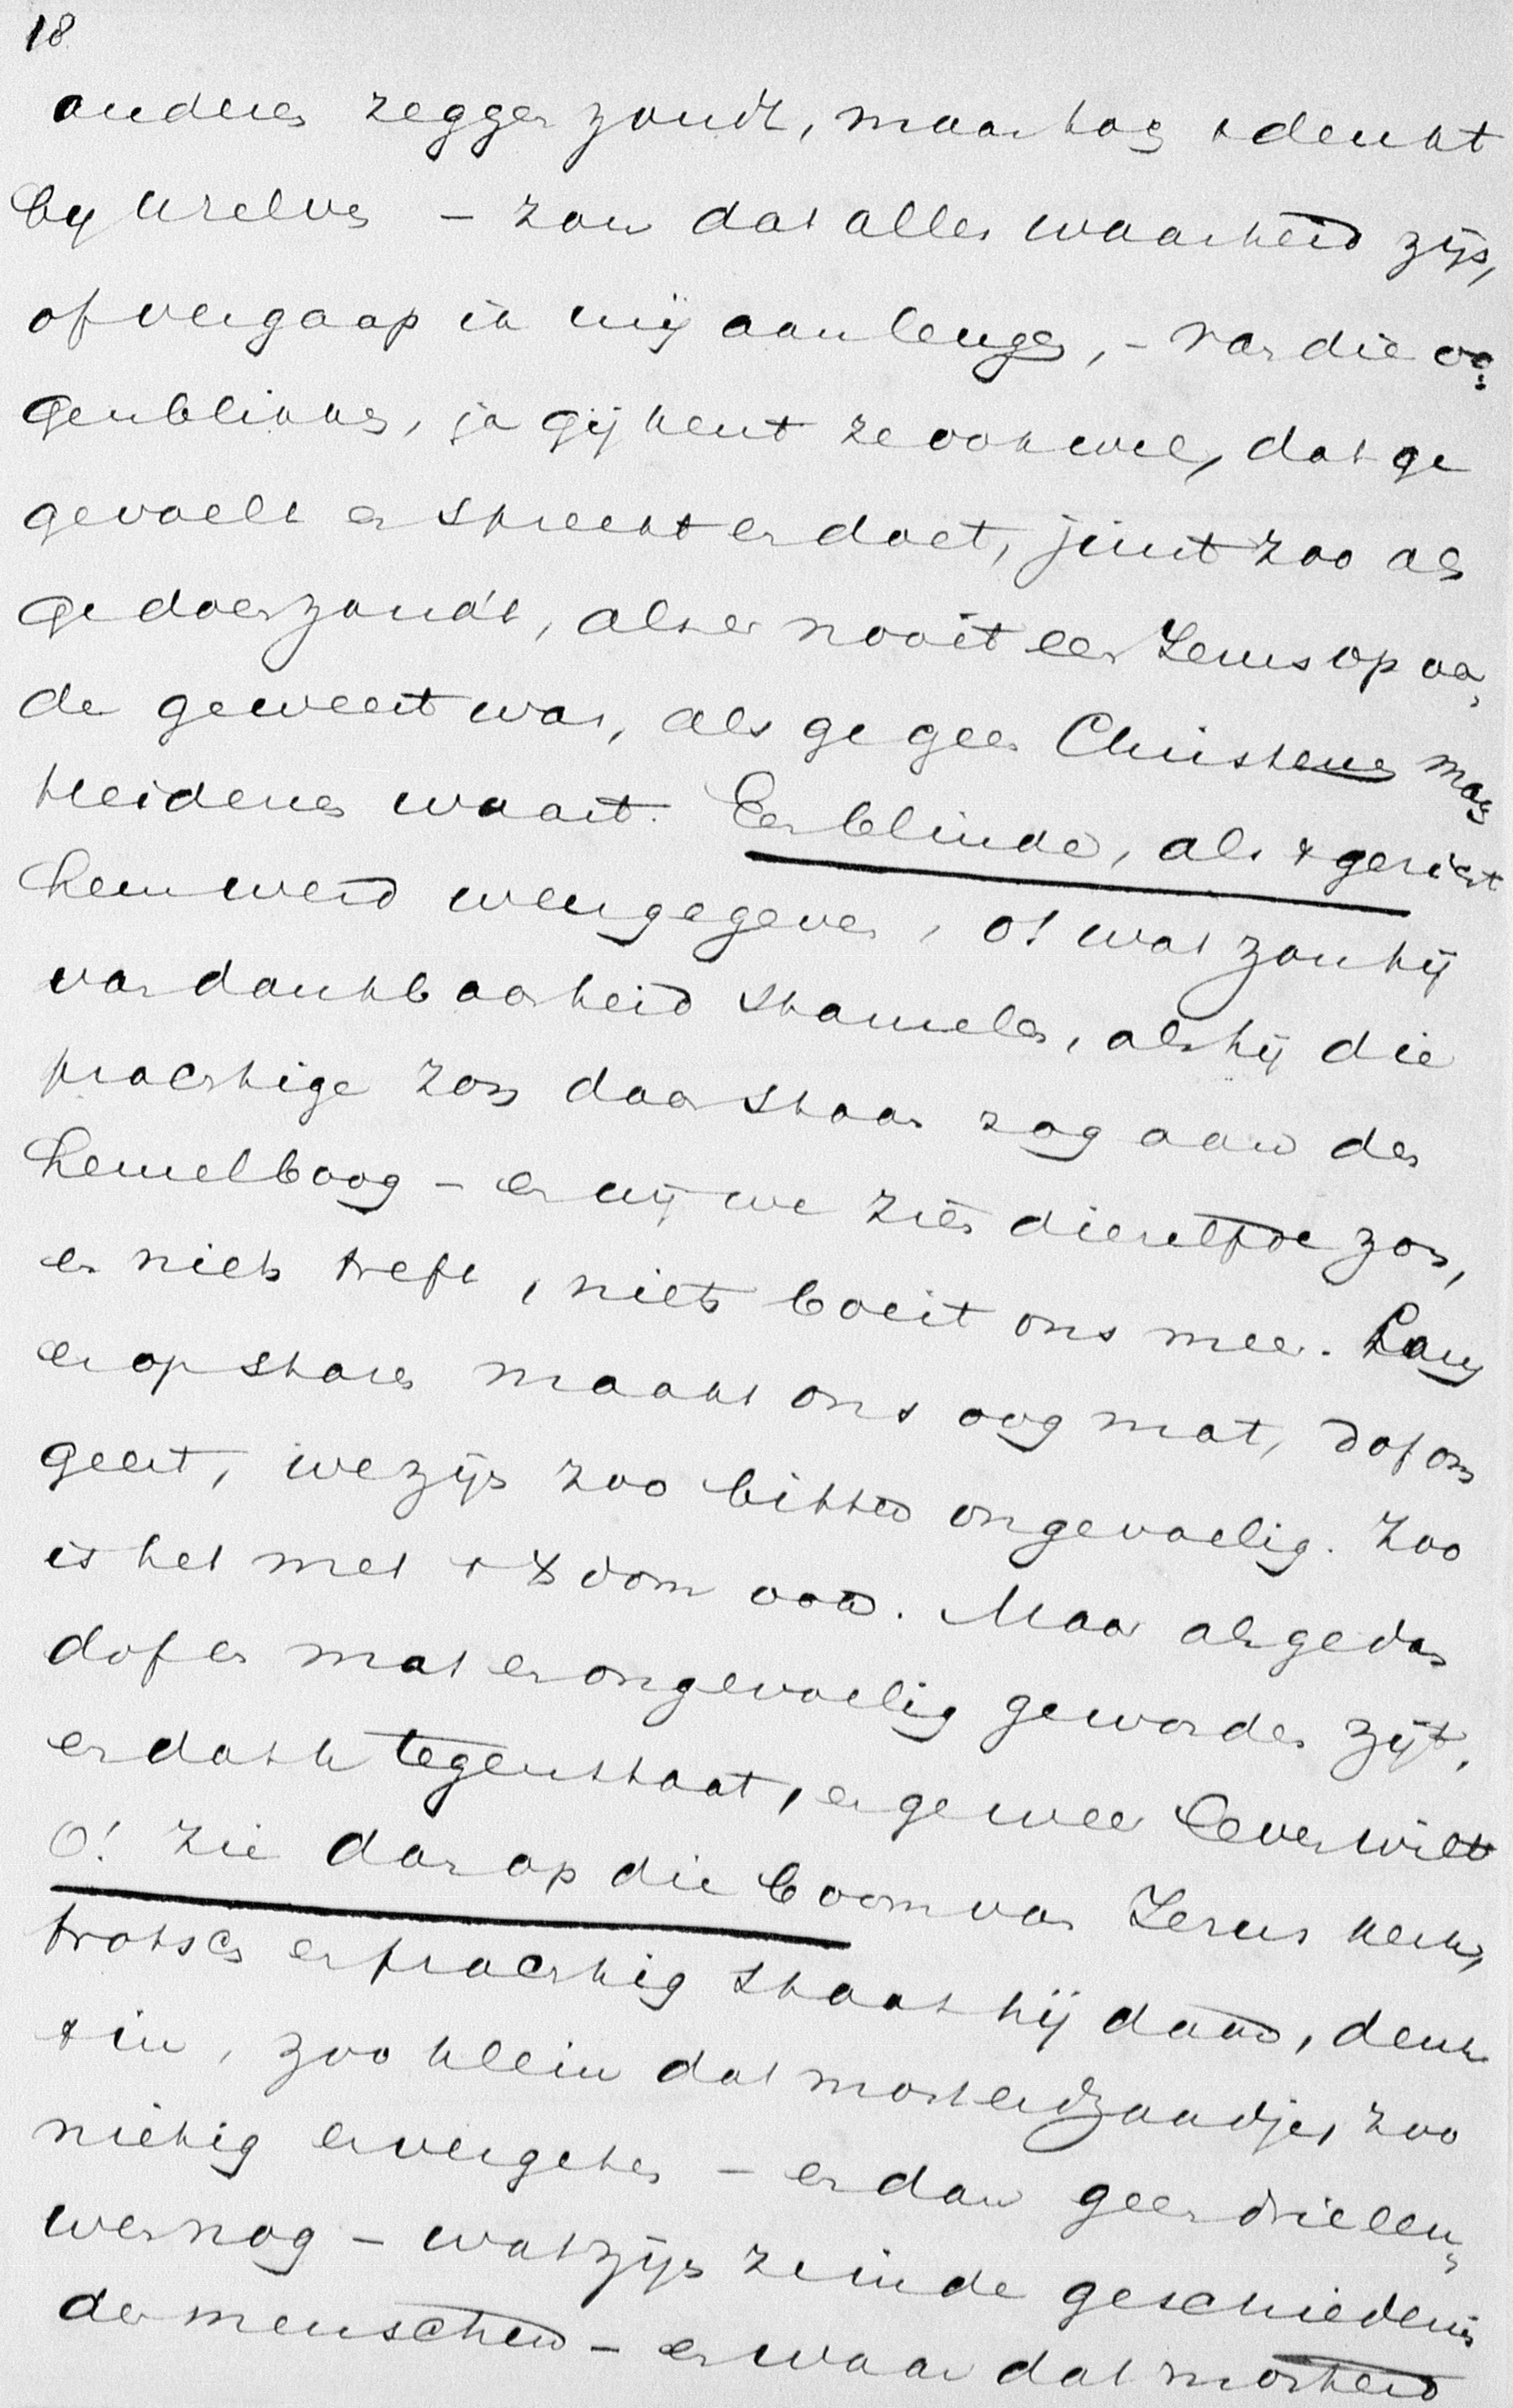 18
anderes zeggen zoudt, maar toch & denkt
by Uzelven - zou dat alles waarheid zijn,
of vergaap ik mij aan leugen, - van die oo=
genblikken, ja gij kent ze ook wel, dat ge
gevoelt en spreekt en doet, juist zoo als
ge doen zoudt, als er nooit een Jezus op aar,
de geweest was, als ge geen Christenen maar
Heidenen waart. Een blinde, als & gezicht
hem werd weergegeven, o! wat zou hij
van dankbaarheid stamelen, als hij die
prachtige zon daar staan zag aan den
hemelboog - en wij we zien diezelfde zon,
en niets treft, niets boeit ons meer. Lang
erop staren maakt ons oog mat, dof ons
geest, we zijn zoo bitter ongevoelig. Zoo
is het met & Xdom ook. Maar als ge dan
dof en mat en ongevoelig geworden zijt,
en dat U tegenstaat, en ge weer leven wilt
O! Zie dan op die boom van Jezus kerk,
trotsch en prachtig staat hij daar, denk
& in, zoo klein dat mosterdzaadje, zoo
nietig en vergeten - en dan geen drie eeu,
wen nog - wat zijn ze in de geschiedenis
der menschen - en waar dat mosterd